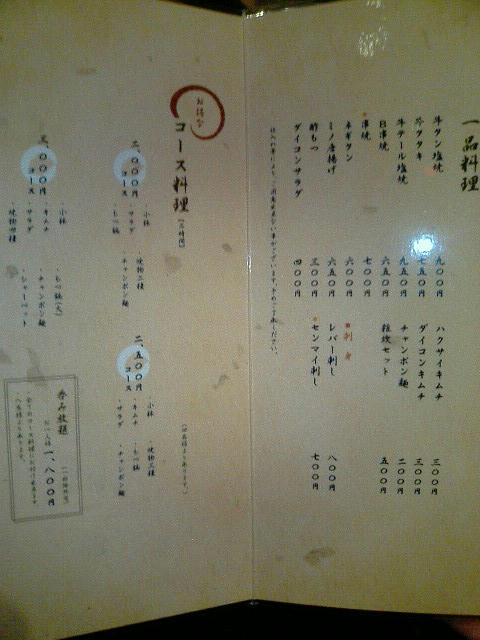 一品料理
牛タン塩焼 九〇〇円
牛タタキ 七五〇円
牛テール塩焼 九五〇円
日串焼 六五〇円
串焼 七〇〇円
ネギタン 六〇〇円
ミノ唐揚げ 六五〇円
酢もつ 三〇〇円
ダイコンサラダ 四〇〇円
ハクサイキムチ 三〇〇円
ダイコンキムチ 三〇〇円
チャンポン麺 二〇〇円
雑炊セット 五〇〇円
刺身
レバー刺し 八〇〇円
センマイ刺し 七〇〇円
お得な
コース料理
二、〇〇〇円
コース
・小鉢
・サラダ
・もつ鍋
・焼物三種
・チャンポン麺
二、五〇〇円
コース
・小鉢
・キムチ
・サラダ
・焼物三種
・もつ鍋
・チャンポン麺
三、〇〇〇円
コース
・小鉢
・キムチ
・サラダ
・焼物四種
・もつ鍋(大)
・チャンポン麺
・シャーベット
呑み放題
お一人様 一、八〇〇円